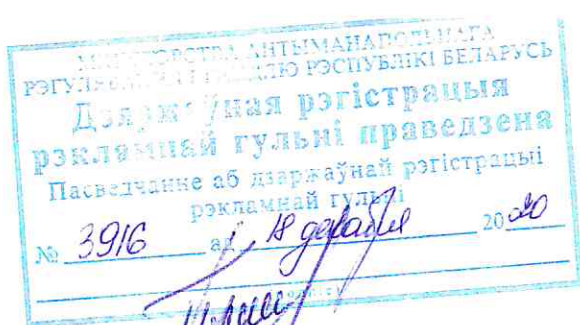 МІНІСТЭРСТВА АНТЫМАНАПОЛЬНАГА
РЭГУЛЯВАННЯ І ГАНДЛЮ РЭСПУБЛІКІ БЕЛАРУСЬ
Дзяржаўная рэгістрацыя
рэкламнай гульні праведзена
Пасведчанне аб дзяржаўнай рэгістрацыі
рэкламнай гульні
№ 3916 ад 18 2020